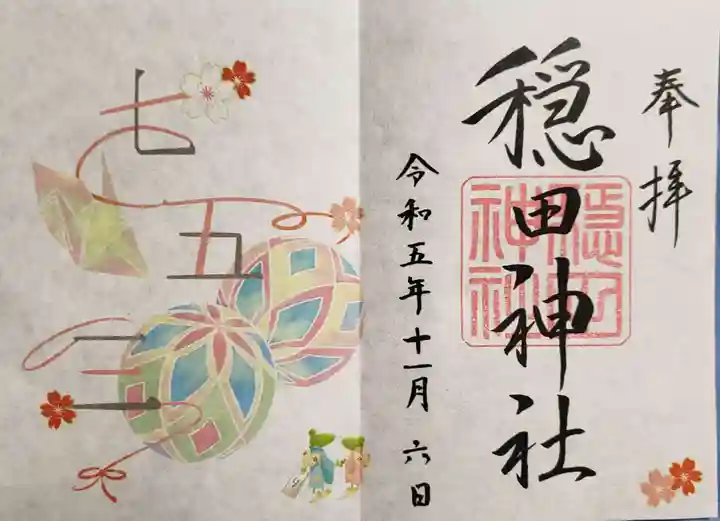 奉拝
穏田神社
穏田神社
令和五年十一月六日
七五三